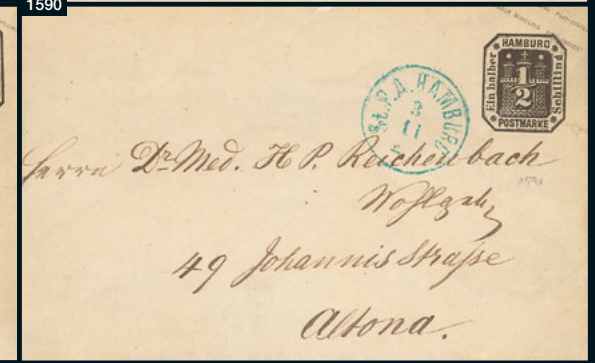 1590
HAMBURG
Ein halber
1/2
Schilling
POSTMARKE
St.P.A. HAMBURG
3
11
Herrn Dr. Med. H P. Reichenbach
Wohlgeb
1590
49 Johannis Straſse
Altona.